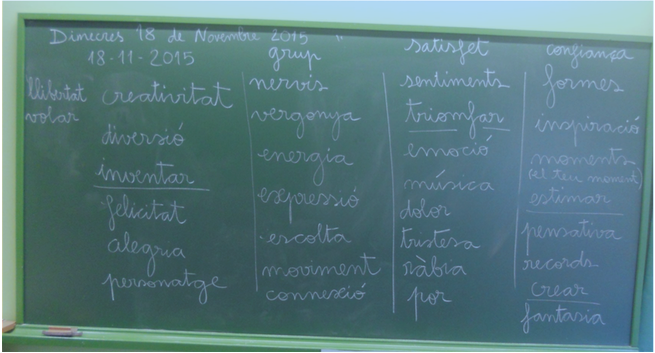 Dimecres 18 de Novembre 2015
18-11-2015
llibertat
volar
creativitat
diversió
inventar
felicitat
alegria
personatge
grup
nervis
vergonya
energia
expressió
escolta
moviment
connexió
satisfet
sentiments
triomfar
emoció
música
dolor
tristesa
ràbia
por
confiança
formes
inspiració
moments
(el teu moment)
estimar
pensativa
records
crear
fantasia